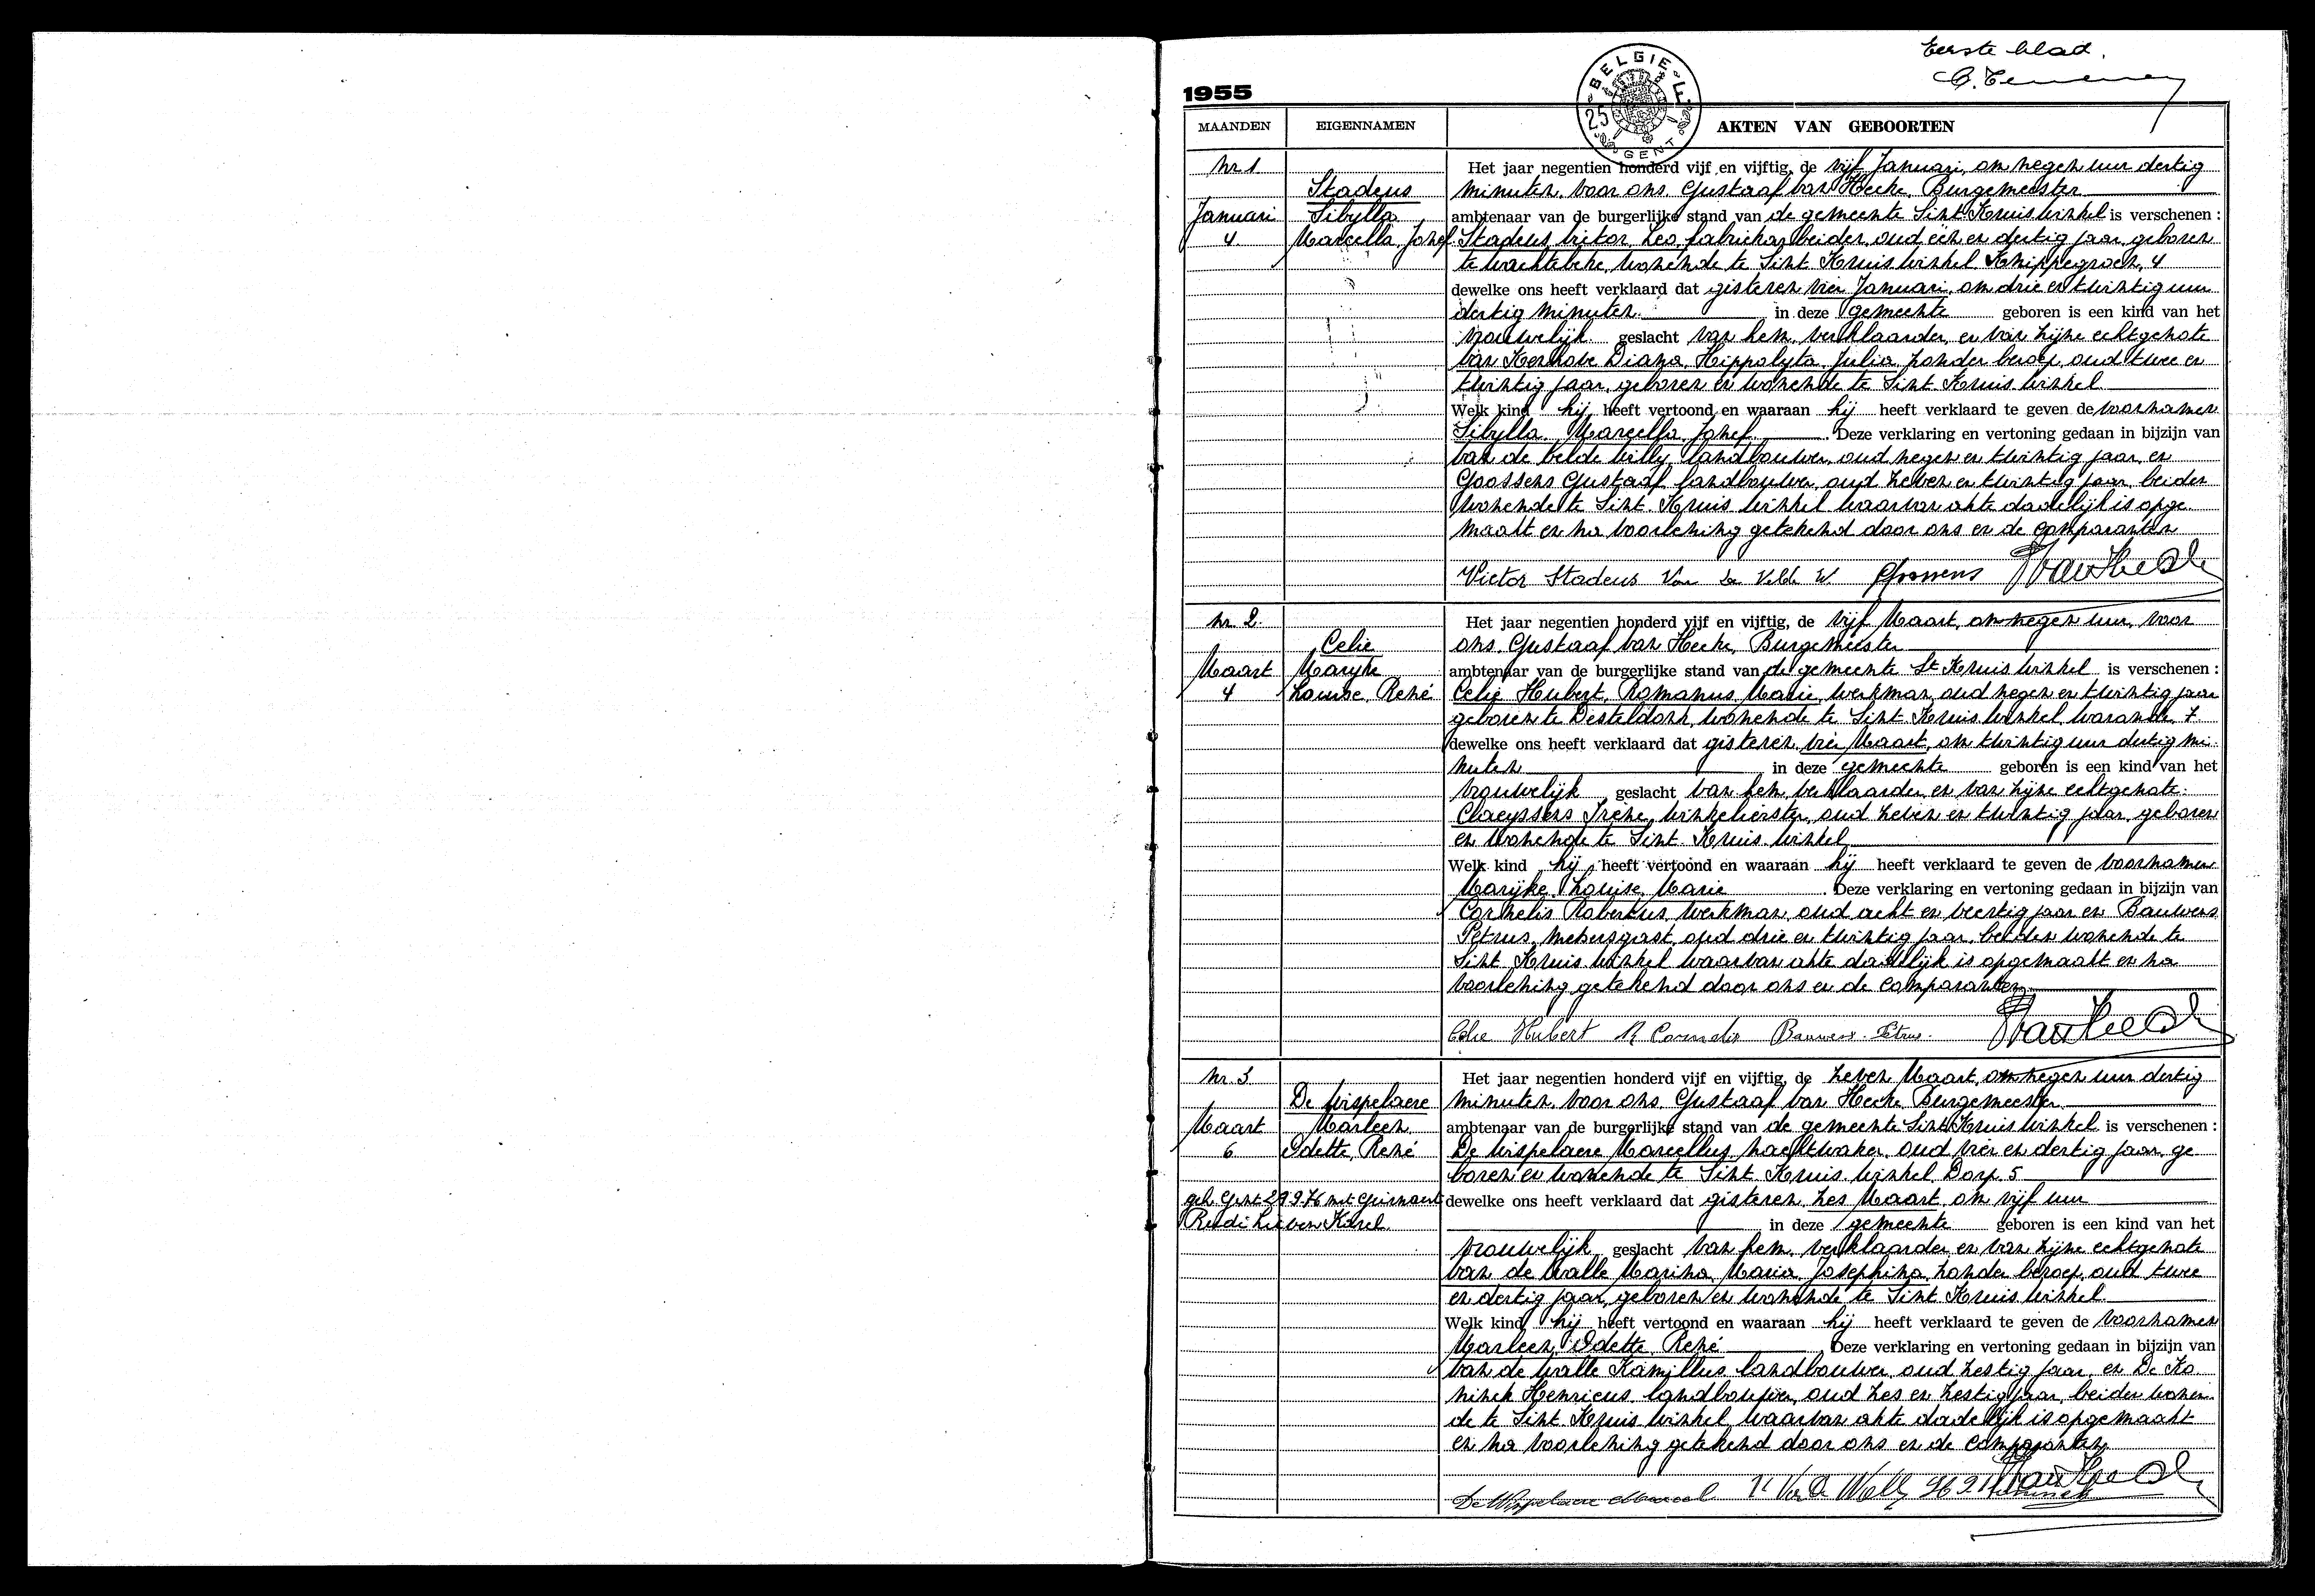 Eerste blad.
1955
BELGIE
25 F
GENT
MAANDEN EIGENNAMEN AKTEN VAN GEBOORTEN
Nr 1 Het jaar negentien honderd vijf en vijftig, de vijf Januari, om negen uur dertig
Stadeus minuten, voor ons, Gustaaf Van Hecke, Burgemeester
Januari Sibylla ambtenaar van de burgerlijke stand van de gemeente Sint Kruis Winkel is verschenen :
4 Marcella, Jozef Stadeus Victor, Leo, fabriekarbeider, oud één en dertig jaar, geboren
te Wachtebeke, wonende te Sint Kruis Winkel, Knippegroen, 4
dewelke ons heeft verklaard dat gisteren vier Januari, om drie en twintig uur
dertig minuten in deze gemeente geboren is een kind van het
vrouwelijk geslacht van hem, verklaarder, en van zijne echtgenote
Van Kerkove Diana, Hippolyta, Julia, zonder beroep, oud twee en
twintig jaar, geboren en wonende te Sint Kruis Winkel
Welk kind hij heeft vertoond en waaraan hij heeft verklaard te geven de voornamen
Sibylla, Marcella, Jozef. Deze verklaring en vertoning gedaan in bijzijn van
Van de Velde Willy, landbouwer, oud negen en twintig jaar, en
Goossens Gustaaf, landbouwer, oud zeven en twintig jaar, beiden
wonende te Sint Kruis Winkel waarvan akte dadelijk is opge
maakt en na voorlezing getekend door ons en de comparanten
Victor Stadeus Van De Velde W Goossens
Nr. 2. Het jaar negentien honderd vijf en vijftig, de vijf Maart, om negen uur, voor
Celie ons, Gustaaf Van Hecke, Burgemeester
Maart Maryke ambtenaar van de burgerlijke stand van de gemeente St Kruis Winkel is verschenen :
4 Louise, René Celie Hubert, Romanus, Marie, werkman, oud negen en twintig jaar
geboren te Desteldonk, wonende te Sint Kruis Winkel, Warande, 7
dewelke ons heeft verklaard dat gisteren, vier Maart, om twintig uur dertig mi-
nuten in deze gemeente geboren is een kind van het
vrouwelijk geslacht van hem, verklaarder, en van zijne echtgenote:
Claeyssens Irène, winkelierster, oud zeven en twintig jaar, geboren
en wonende te Sint Kruis Winkel
Welk kind hij heeft vertoond en waaraan hij heeft verklaard te geven de voornamen
Maryke, Louise, Marie. Deze verklaring en vertoning gedaan in bijzijn van
Cornelis Robertus, werkman, oud acht en veertig jaar en Bauwens
Petrus, metsersgast, oud drie en twintig jaar, beiden wonende te
Sint Kruis Winkel waarvan akte dadelijk is opgemaakt en na
voorlezing getekend door ons en de comparanten
Celie Hubert R Cornelis Bauwens Petrus.
Nr. 3 Het jaar negentien honderd vijf en vijftig, de zeven Maart, om negen uur dertig
De Wispelaere minuten, voor ons, Gustaaf Van Hecke, Burgemeester
Maart Marleen ambtenaar van de burgerlijke stand van de gemeente Sint Kruis Winkel is verschenen :
6 Odette, René De Wispelaere Marcellus, nachtwaker, oud vier en dertig jaar, ge
boren en wonende te Sint Kruis Winkel, Dorp, 5
geh. Gent 29 9.76 met dewelke ons heeft verklaard dat gisteren, zes Maart, om vijf uur
Rudi Lieven Karel in deze gemeente geboren is een kind van het
vrouwelijk geslacht van hem, verklaarder, en van zijne echtgenote
Van de Walle Marina, Maria, Josephina, zonder beroep, oud twee
en dertig jaar, geboren en wonende te Sint Kruis Winkel
Welk kind hij heeft vertoond en waaraan hij heeft verklaard te geven de voornamen
Marleen, Odette, René. Deze verklaring en vertoning gedaan in bijzijn van
Van de Walle Kamillus, landbouwer, oud zestig jaar, en De Ko
ninck Henricus, landbouwer, oud zes en zestig jaar, beiden wonen
de te Sint Kruis Winkel, waarvan akte dadelijk is opgemaakt
en na voorlezing getekend door ons en de comparanten
De Wispelaere Marcel K Van De Walle